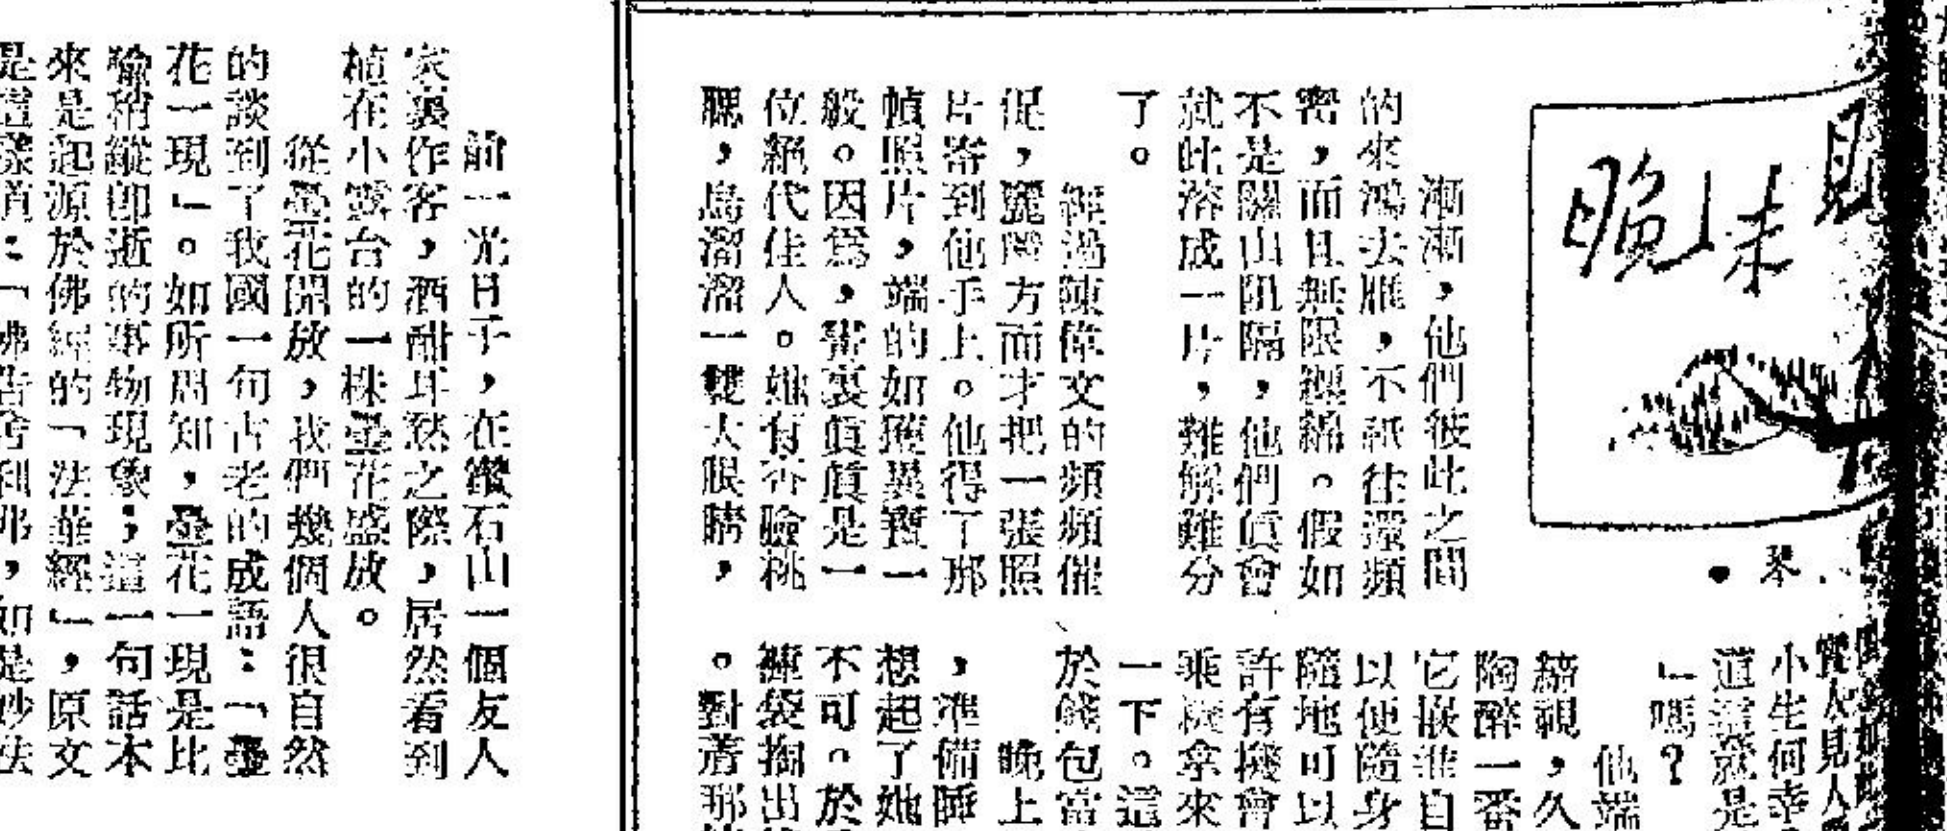 見
未
晚
琴
漸漸,他們彼此之間
的來鴻去雁,不祇往還頻
密,而且無限纏綿。假如
不是關山阻隔,他們眞會
就此溶成一片,難解難分
了。
經過陳偉文的頻頻催
促,麗
方面才把一張照
片寄到他手上。他得了那
幀照片,端的如獲異寶一
般。因爲,
裏眞眞是一
位絕代佳人。她有杏臉桃
腮,烏溜溜一雙大眼睛,
小生何幸
道這就是
」嗎?
他端
締視,久
陶醉一番
它嵌進自
以便隨身
隨地可以
許有機會
乘機拿來
一下。這
於錢包當
晚上
,準備睡
想起了她
不可。於
褲袋掏出
。對着那
前一光日子,在
石山一個友人
家裏作客,酒酣耳熱之際,居然看到
植在小露台的一株曇花盛放。
從曇花開放,我們幾個人很自然
的談到了我國一句古老的成語:「曇
花一現」。如所周知,曇花一現是比
喻稍縱卽逝的事物現象;這一句話本
來是起源於佛經的「法華經」,原文
是這樣道:「佛告舍利弗,如是妙法